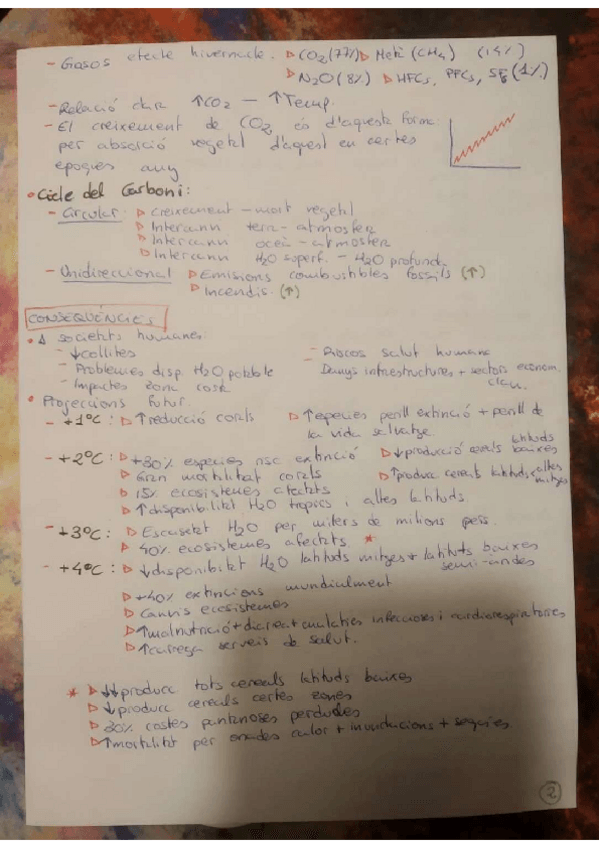 - Gasos efecte hivernacle. ▷ CO2 (77%) ▷ Metà (CH4) (14%)
▷ N2O (8%) ▷ HFCs, PFCs, SF6 (1%)
- Relació clar ↑CO2 - ↑Temp.
- El creixement de CO2 és d'aquesta forma
per absorció vegetal d'aquest en certes
èpoques any
• Cicle del Carboni:
- Circular ▷ Creixement - mort vegetal
▷ Intercanvi terra - atmosfera
▷ Intercanvi oceà - atmosfera
▷ Intercanvi H2O superf. - H2O profunda
- Unidireccional ▷ Emisions combustibles fossils (↑)
▷ Incendis. (↑)
CONSEQÜÈNCIES
• A societats humanes:
- ↓collites
- Problemes disp. H2O potable
- Impactes zona costa
- Riscos salut humana
Danys infraestructures + sectors econòm. clau.
• Projeccions futur.
- +1ºC: ▷ ↑reducció coralls ▷ ↑espècies perill extinció + perill de
la vida salvatge
- +2ºC: ▷ +30% especies risc extinció ▷ ↓producció cereals latituds baixes
▷ Gran mortalitat coralls ▷ ↑produce cereals latituds altes mitges
▷ 15% ecosistemes afectats
▷ ↑disponibilitat H2O tropics i altes latituds.
- +3ºC: ▷ Escasetat H2O per milers de milions pers.
▷ 40% ecosistemes afectats. *
- +4ºC: ▷ ↓disponibitat H2O latituds mitges + latituds baixes
semi-àrides
▷ +40% extincions mundialment
▷ Canvis ecosistemes
▷ ↑malnutrició + diarrea + malalties infeccioses i cardiorespiratories
▷ ↑carrega serveis de salut.
* ▷ ↓↓produce tots cereals latituds baixes
▷ ↓produce cereals certes zones
▷ 30% costes pantanoses perdudes
▷ ↑mortalitat per onades calor + inundacions + sequies.
2